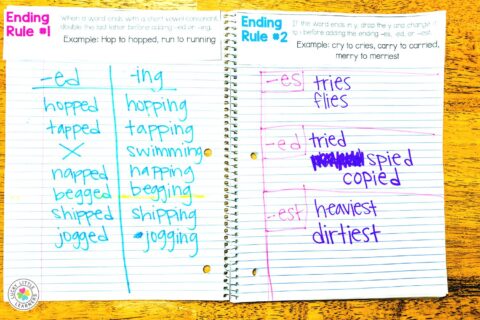 Ending
Rule #1
When a word ends with a short vowel consonant,
double the last letter before adding -ed or -ing.
Example: Hop to hopped, run to running
-ed -ing
hopped hopping
tapped tapping
X swimming
napped napping
begged begging
shipped shipping
jogged jogging
Ending
Rule #2
If the word ends in y, drop the y and change it
to i before adding the ending -es, -ed, or -est.
Example: cry to cries, carry to carried,
merry to merriest
-es tries
flies
-ed tried
spied
copied
-est heaviest
dirtiest
LUCKY LITTLE LEARNERS